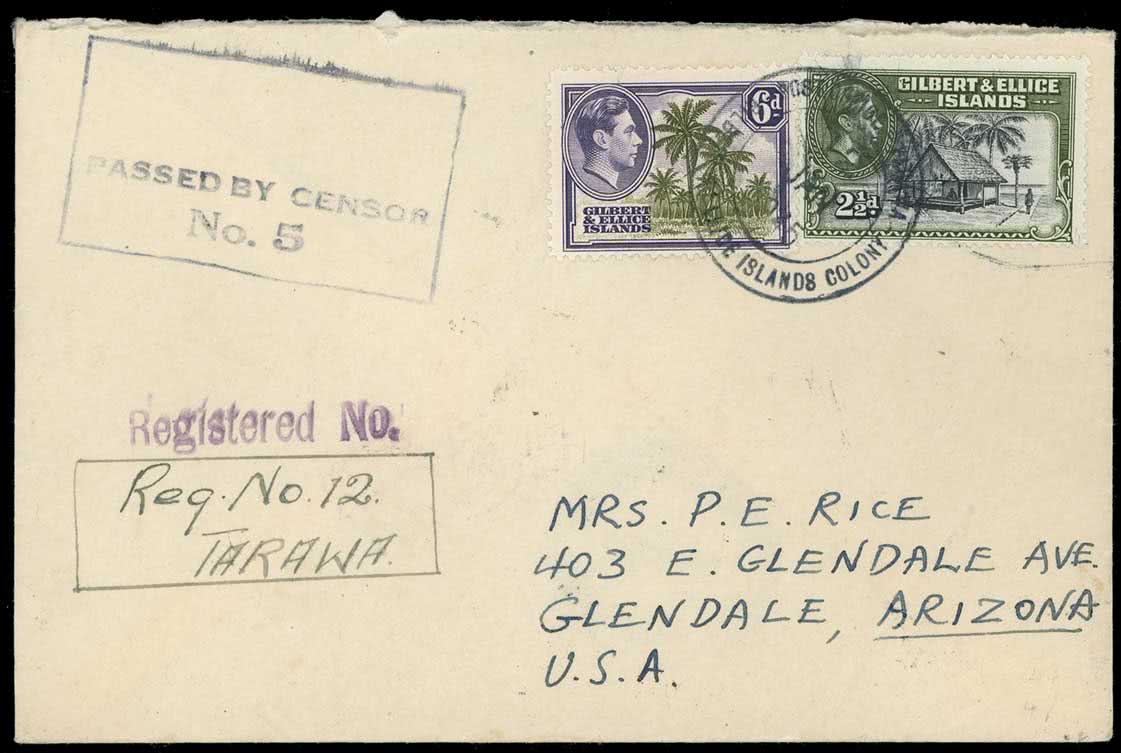 PASSED BY CENSOR
No. 5
6d
GILBERT
& ELLICE
ISLANDS
GILBERT & ELLICE
ISLANDS
2½d
ISLANDS COLONY
Registered No.
Reg. No. 12.
TARAWA.
MRS. P. E. RICE
403 E. GLENDALE AVE.
GLENDALE, ARIZONA
U.S.A.